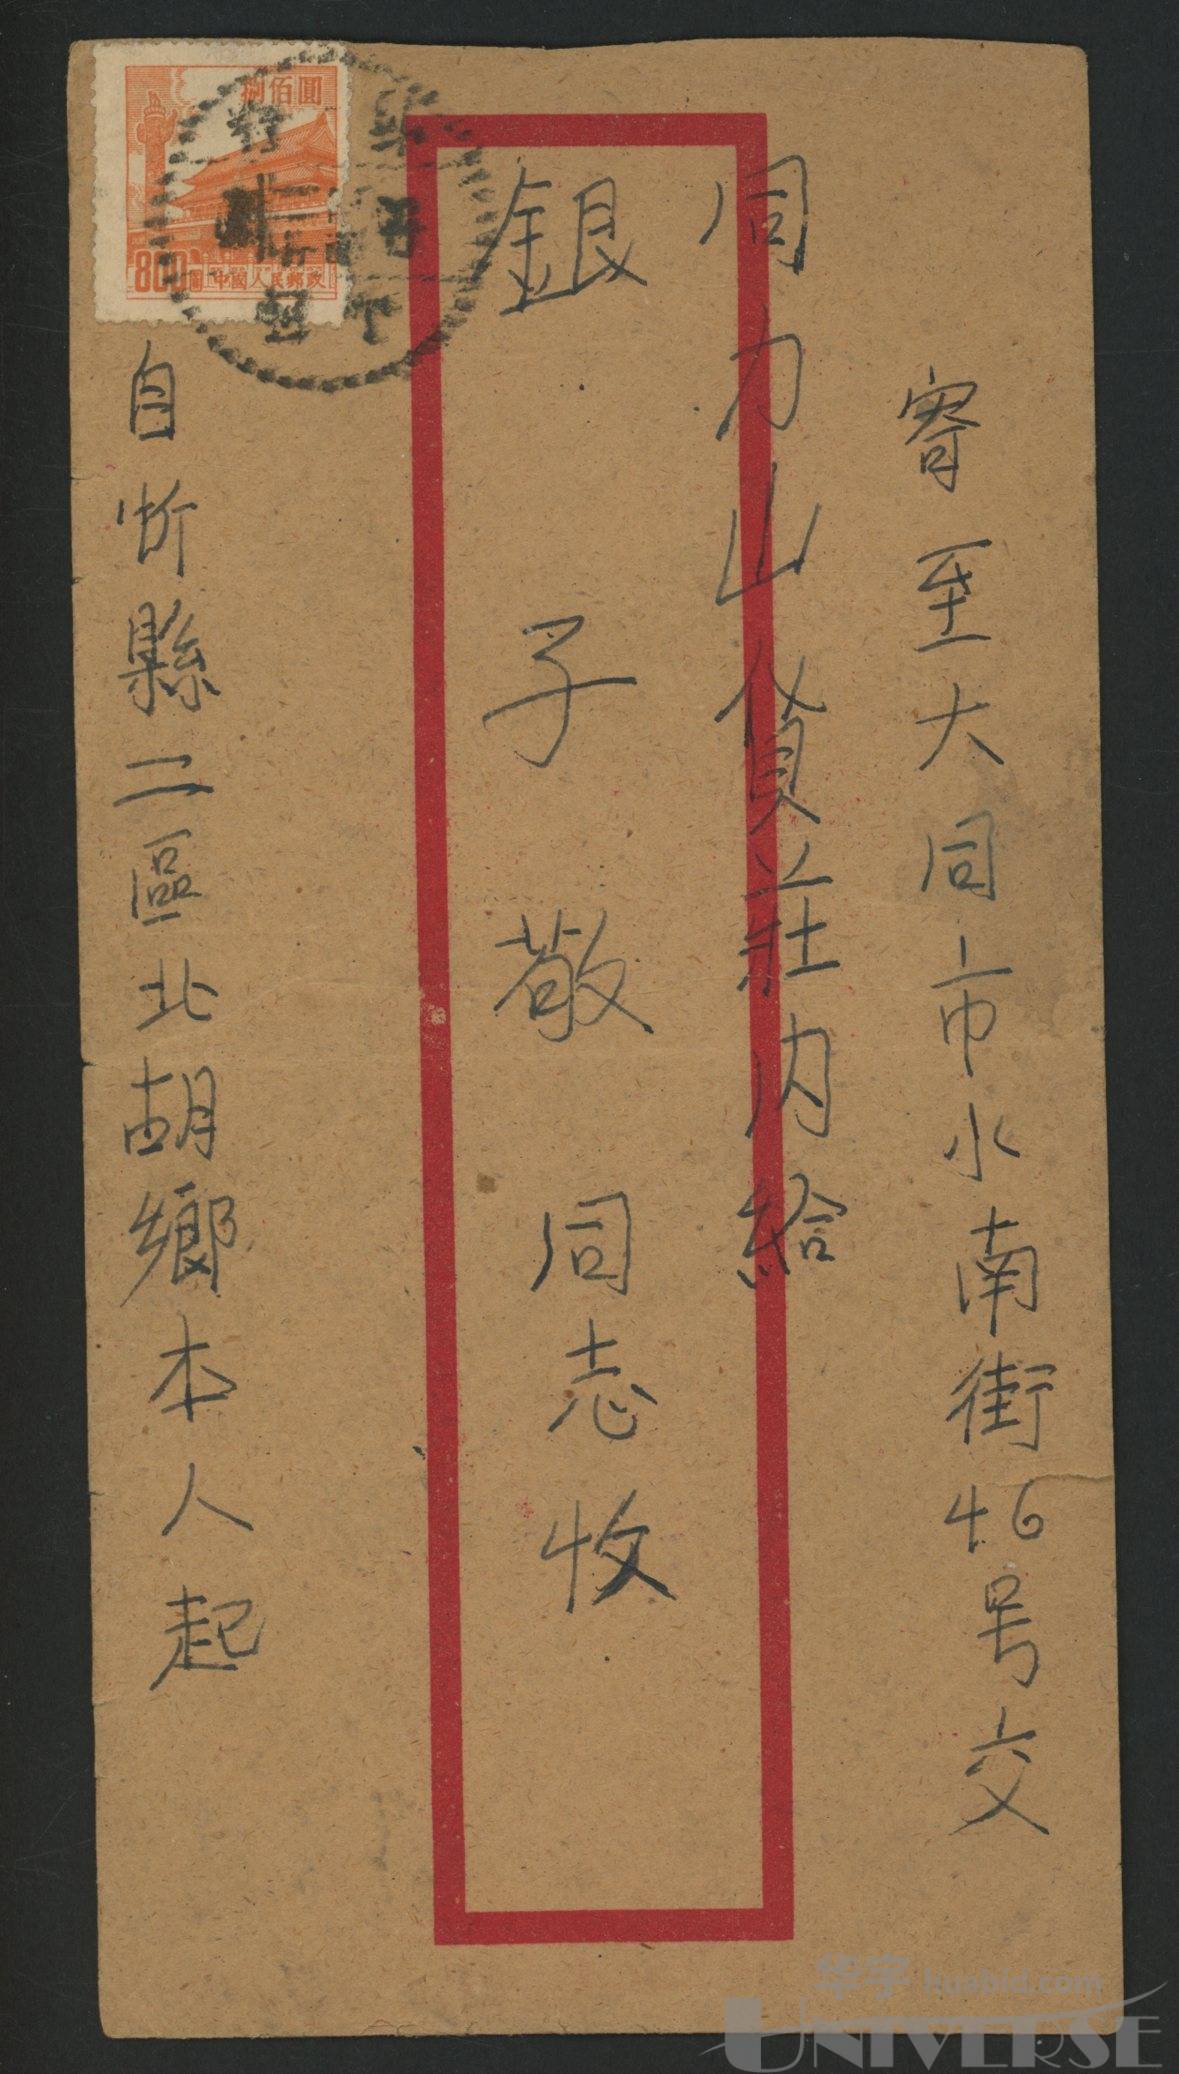 寄至大同市水南街46号交
同力山貨莊内給
銀子敬同志收
自忻縣二區北胡鄉本人起
捌佰圓
800圓
中國人民郵政
华宇 huabid.com
UNIVERSE